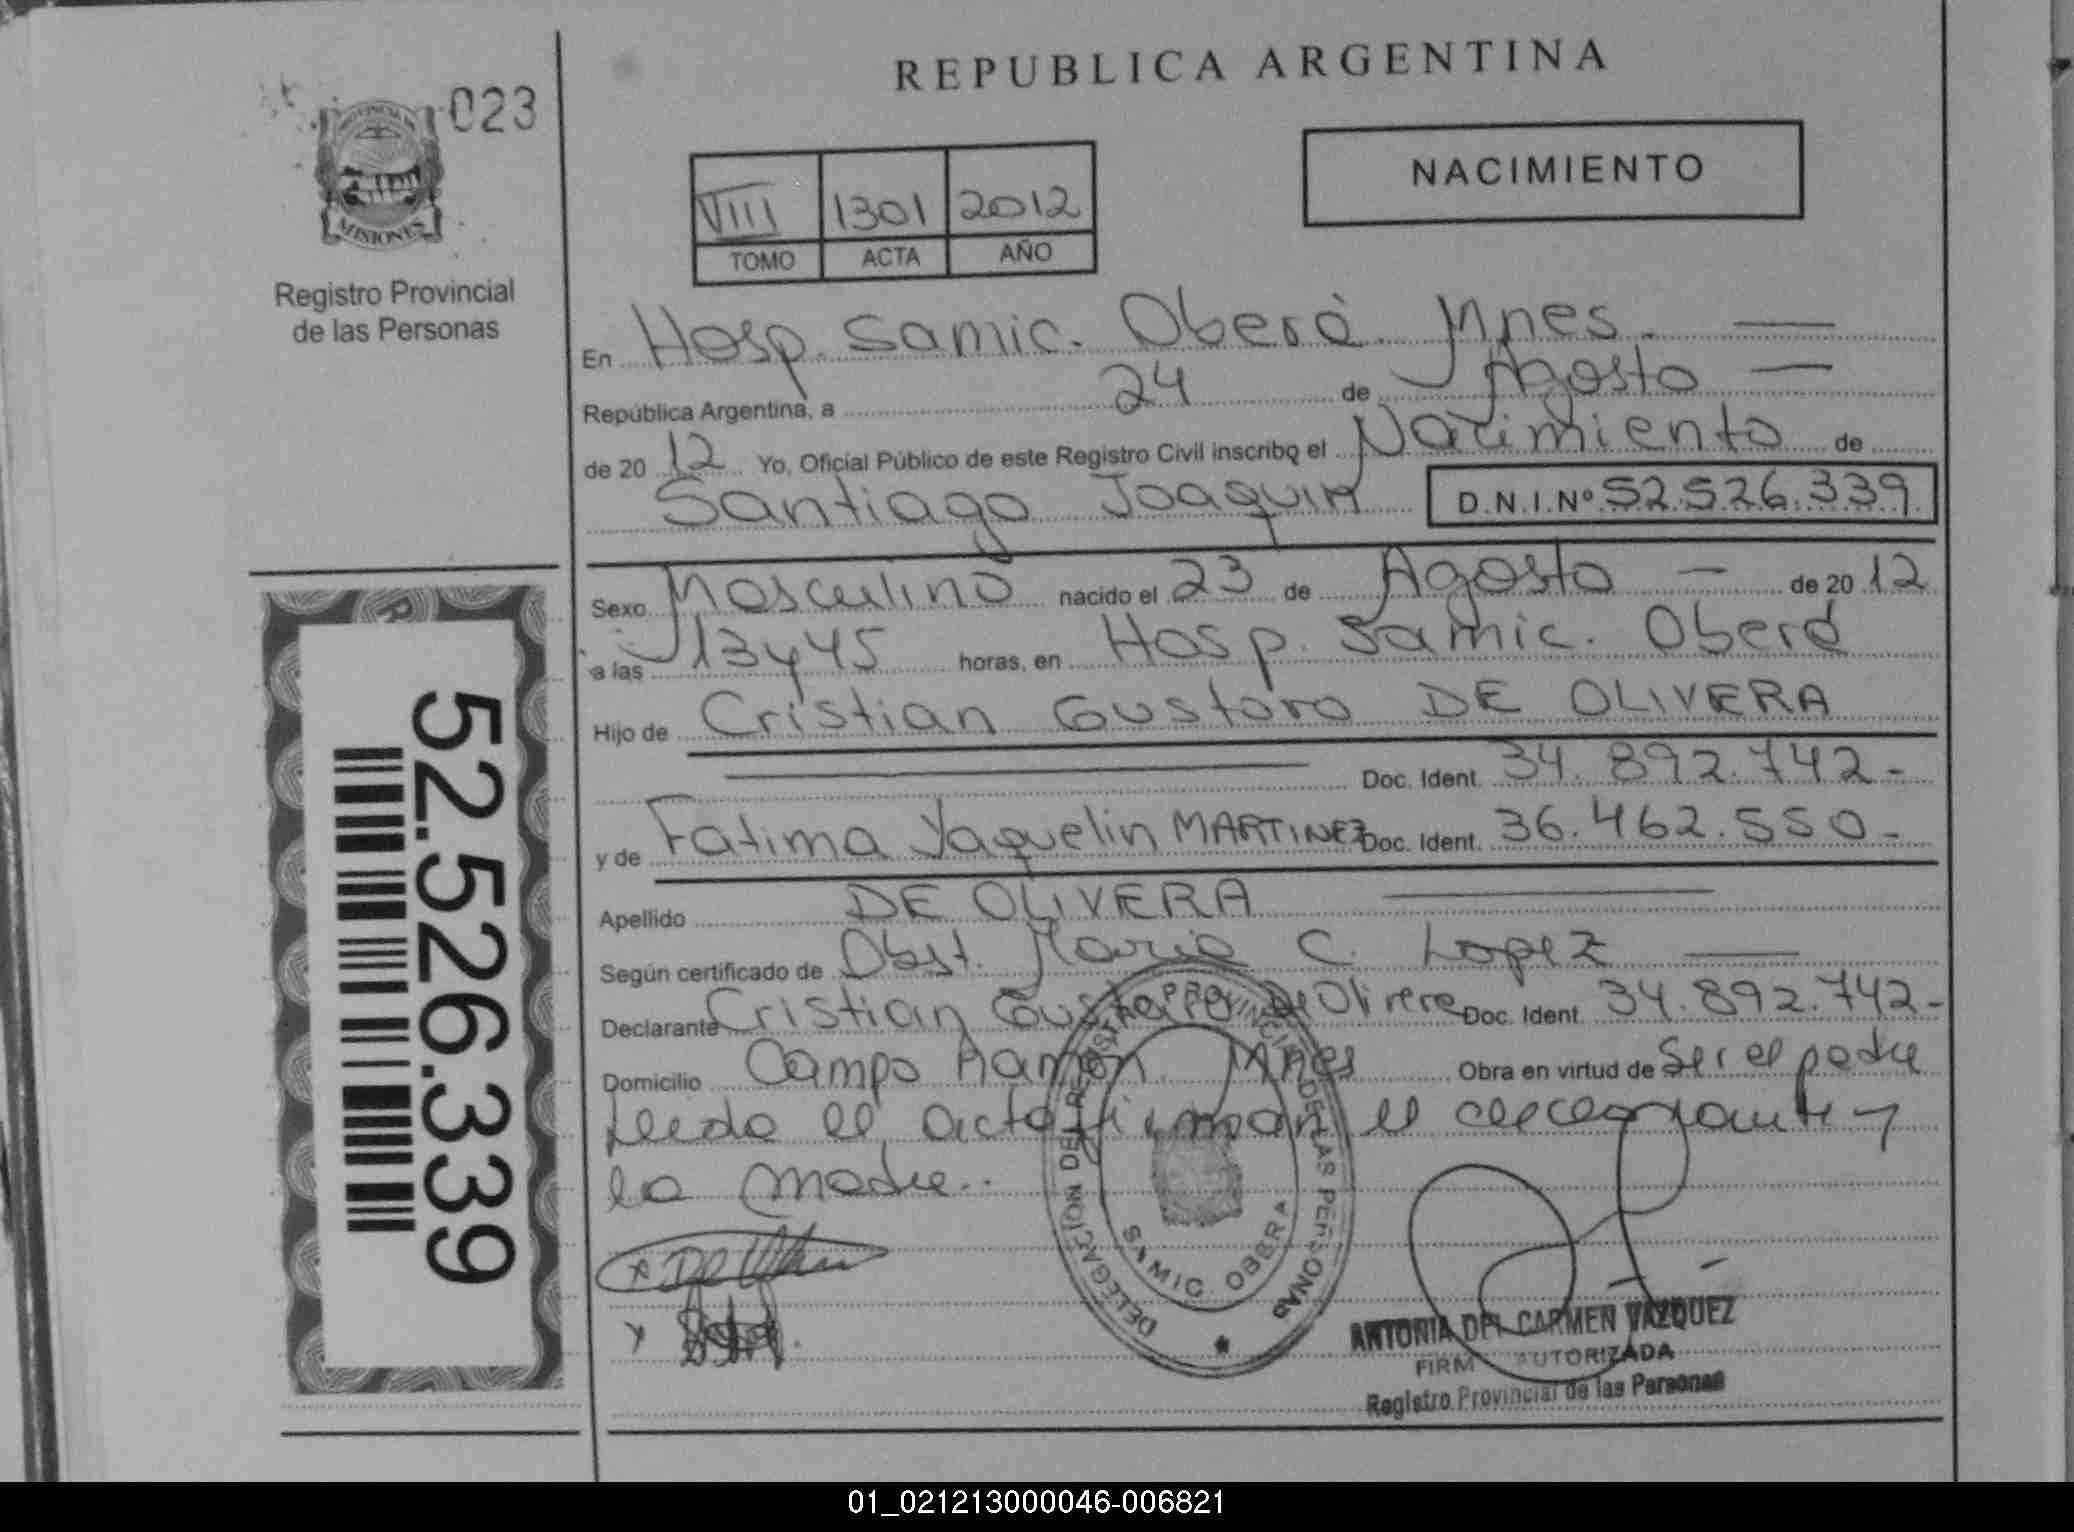 REPUBLICA ARGENTINA
023
PROVINCIA DE
MISIONES
Registro Provincial
de las Personas
NACIMIENTO
VIII 1301 2012
TOMO ACTA AÑO
En Hosp. Samic. Oberá. Mnes.
República Argentina, a 24 de Agosto
de 20 12 Yo, Oficial Público de este Registro Civil inscribo el Nacimiento de
Santiago Joaquin D.N.I.Nº 52.526.339
Sexo Masculino nacido el 23 de Agosto de 20 12
a las 13 y 45 horas, en Hosp. Samic. Oberá
Hijo de Cristian Gustavo DE OLIVERA
Doc. Ident. 34.892.742-
y de Fatima Yaquelin MARTINEZ Doc. Ident. 36.462.550-
Apellido DE OLIVERA
Según certificado de Obst. Maria C. Lopez
Declarante Cristian Gustavo De Olivera Doc. Ident. 34.892.742-
Domicilio Campo Ramon Mnes Obra en virtud de Ser el padre
Leida el acta firman el declarante y
la madre..
52.526.339
DELEGACION DEL REGISTRO PROVINCIAL DE LAS PERSONAS
SAMIC OBERA
ANTONIA DEL CARMEN VAZQUEZ
FIRMA AUTORIZADA
Registro Provincial de las Personas
01_021213000046-006821